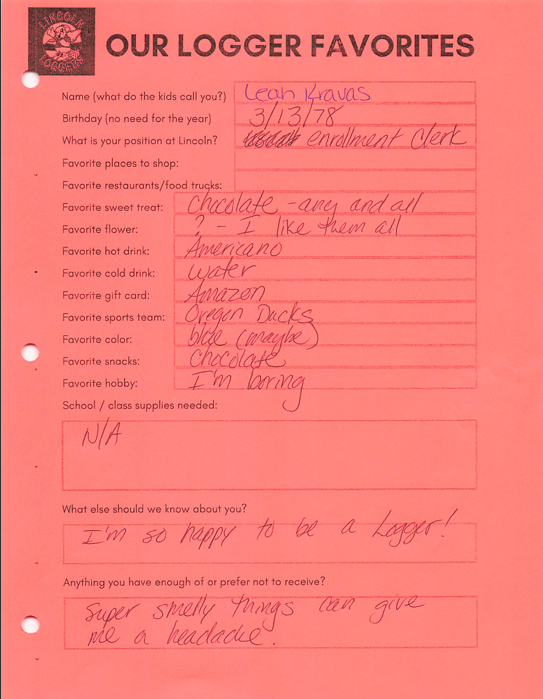 LINCOLN
LOGGERS
OUR LOGGER FAVORITES
Name (what do the kids call you?) Leah Kravas
Birthday (no need for the year) 3/13/78
What is your position at Lincoln? enrollment Clerk
Favorite places to shop:
Favorite restaurants/food trucks:
Favorite sweet treat: Chocolate - any and all
Favorite flower: ? - I like them all
Favorite hot drink: Americano
Favorite cold drink: water
Favorite gift card: Amazon
Favorite sports team: Oregon Ducks
Favorite color: blue (maybe)
Favorite snacks: Chocolate
Favorite hobby: I'm boring
School / class supplies needed:
N/A
What else should we know about you?
I'm so happy to be a Logger!
Anything you have enough of or prefer not to receive?
Super smelly things can give
me a headache.